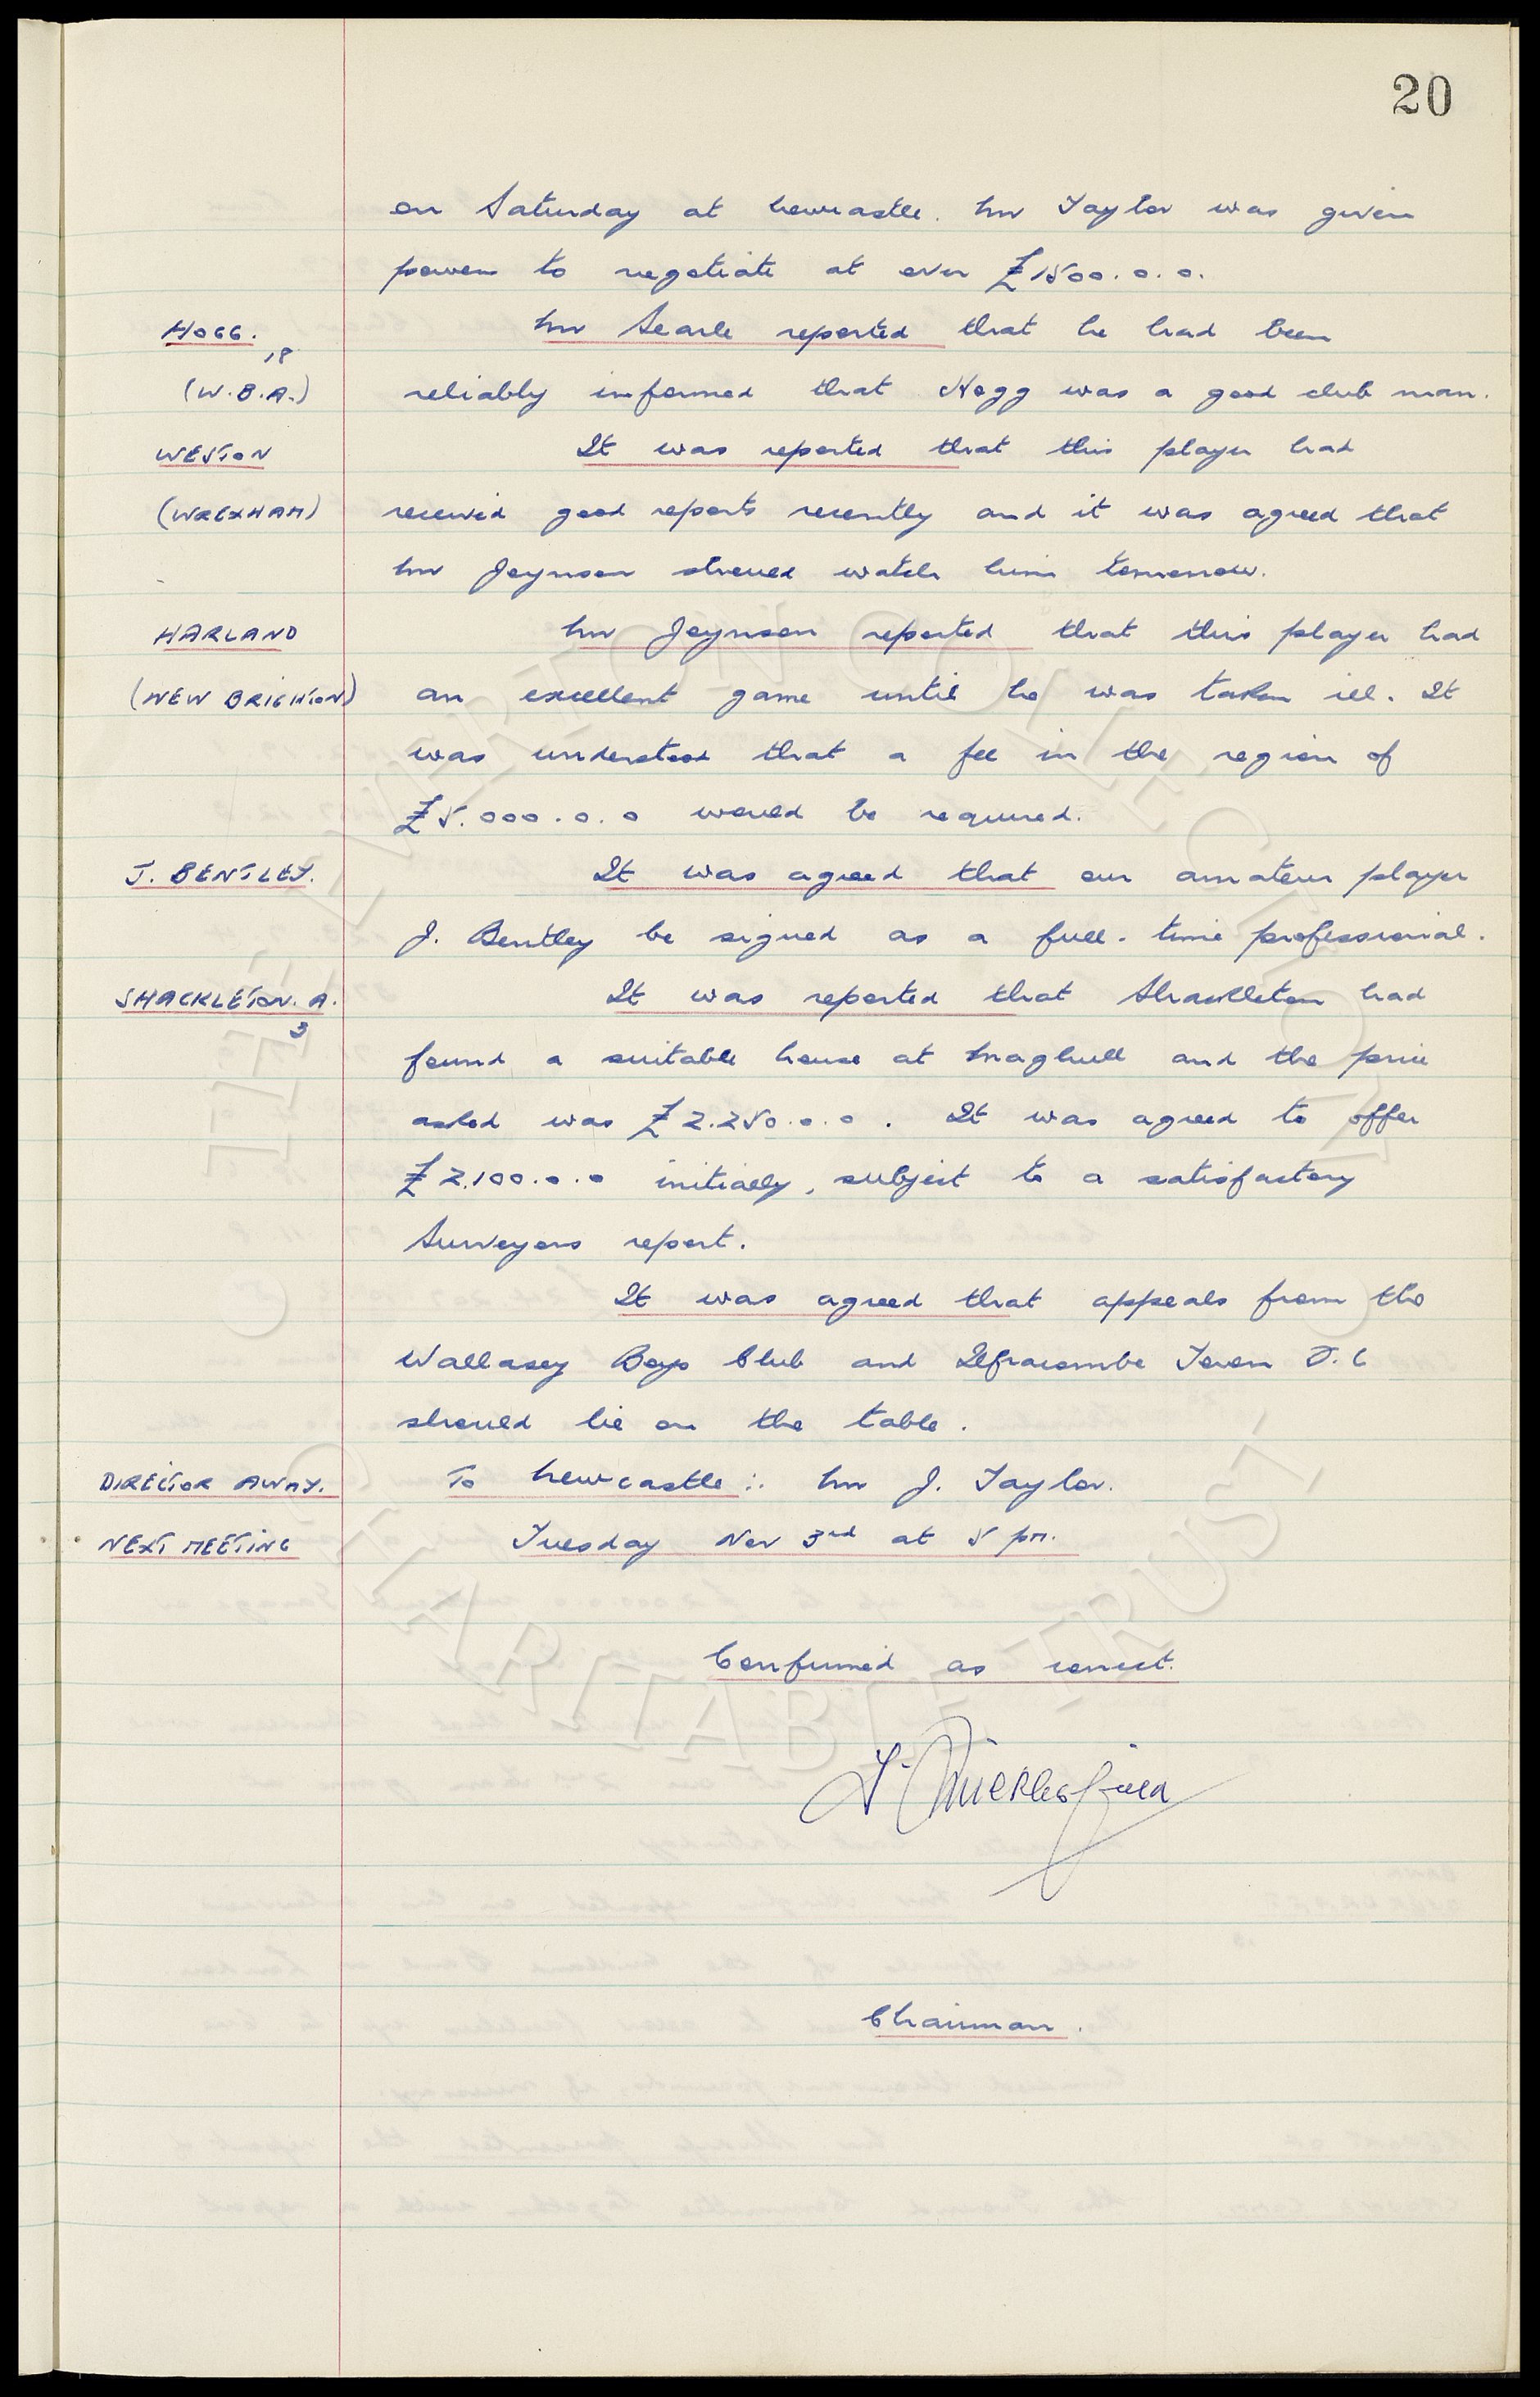 20
on Saturday at Newcastle. Mr Taylor was given
powers to negotiate at over £1500.0.0.
HOGG. Mr Searle reported that he had been
18
(W.B.A.) reliably informed that Hogg was a good club man.
WESTON It was reported that this player had
(WREXHAM) received good reports recently and it was agreed that
Mr Joynson should watch him tomorrow.
HARLAND Mr Joynson reported that this player had
(NEW BRIGHTON) an excellent game until he was taken ill. It
was understood that a fee in the region of
£5.000.0.0 would be required.
J. BENTLEY. It was agreed that our amateur player
J. Bentley be signed as a full-time professional.
SHACKLETON. A. It was reported that Shackleton had
3
found a suitable house at Maghull and the price
asked was £2.250.0.0. It was agreed to offer
£2.100.0.0 initially, subject to a satisfactory
Surveyors report.
It was agreed that appeals from the
Wallasey Boys Club and Ilfracombe Town F.C
should lie on the table.
DIRECTOR AWAY. To Newcastle:. Mr J. Taylor.
NEXT MEETING Tuesday Nov 3rd at 5 pm.
Confirmed as correct.
Chairman.
THE EVERTON COLLECTION
CHARITABLE TRUST